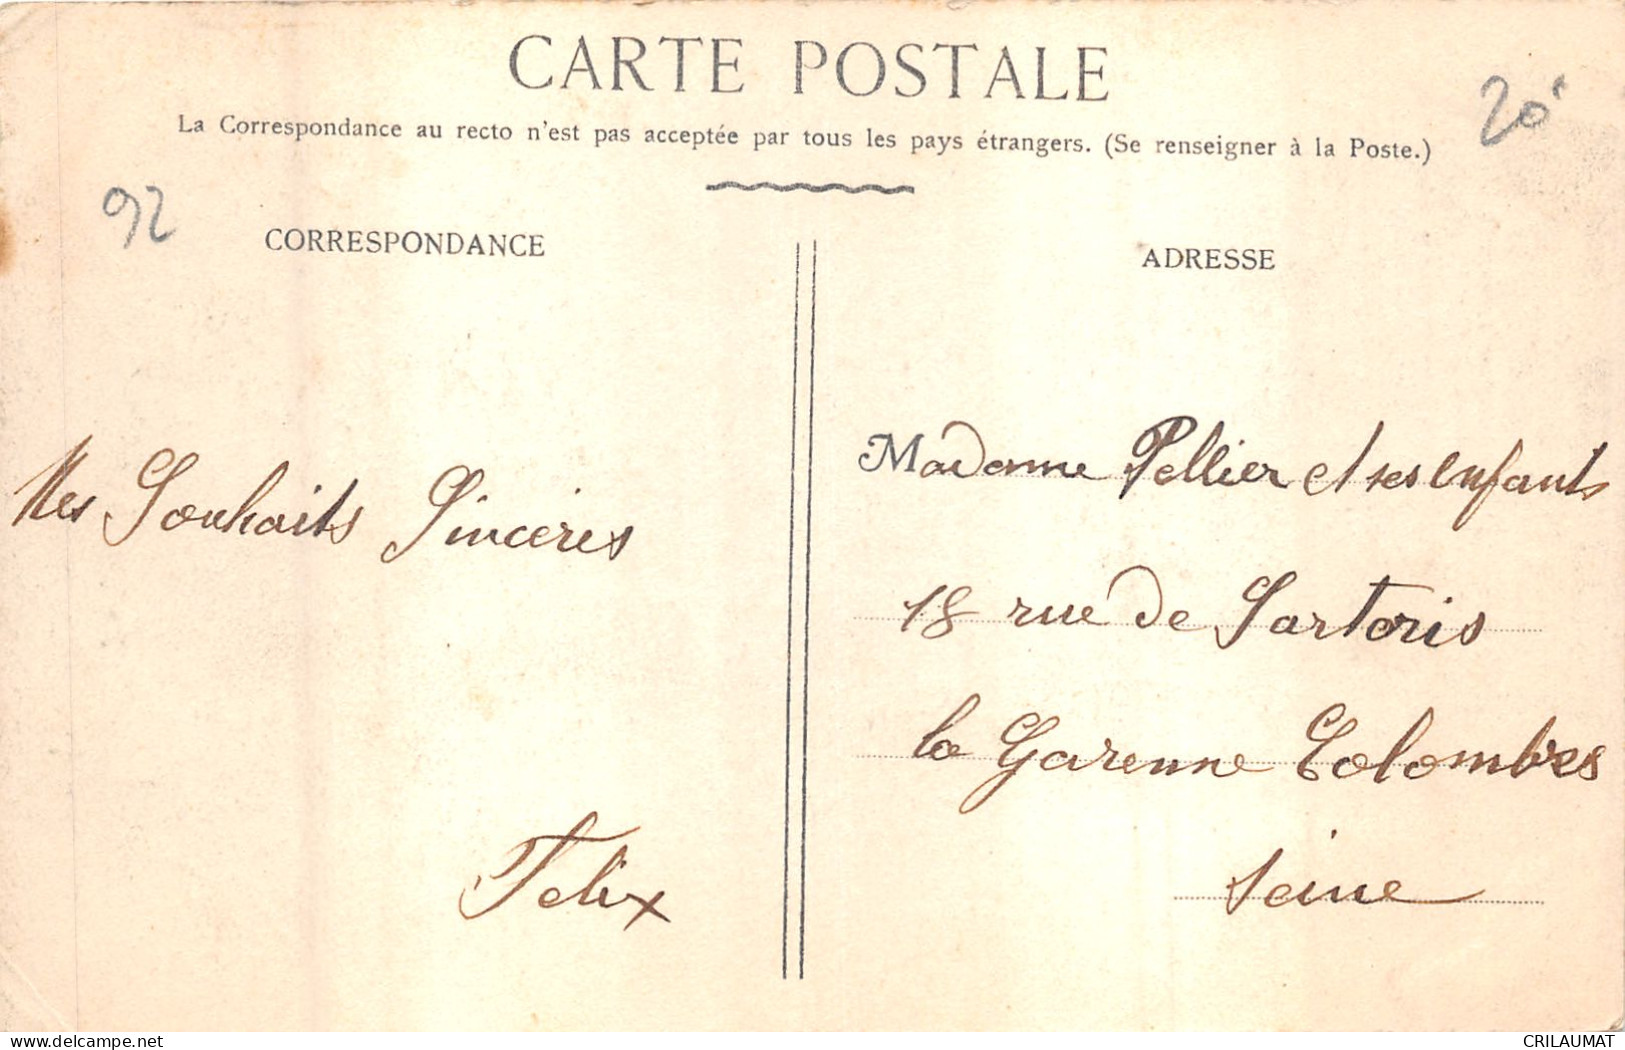 CARTE POSTALE
La Correspondance au recto n'est pas acceptée par tous les pays étrangers. (Se renseigner à la Poste.)
20
92
CORRESPONDANCE
Mes Souhaits Sincères
Felix
ADRESSE
Madame Pellier et ses enfants
18 rue de Sartoris
la Garenne Colombes
Seine
delcampe.net
CRILAUMAT